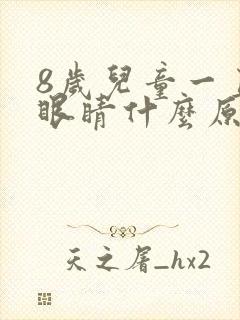 8歲兒童一
眼睛什麼原
天之眉_hx2